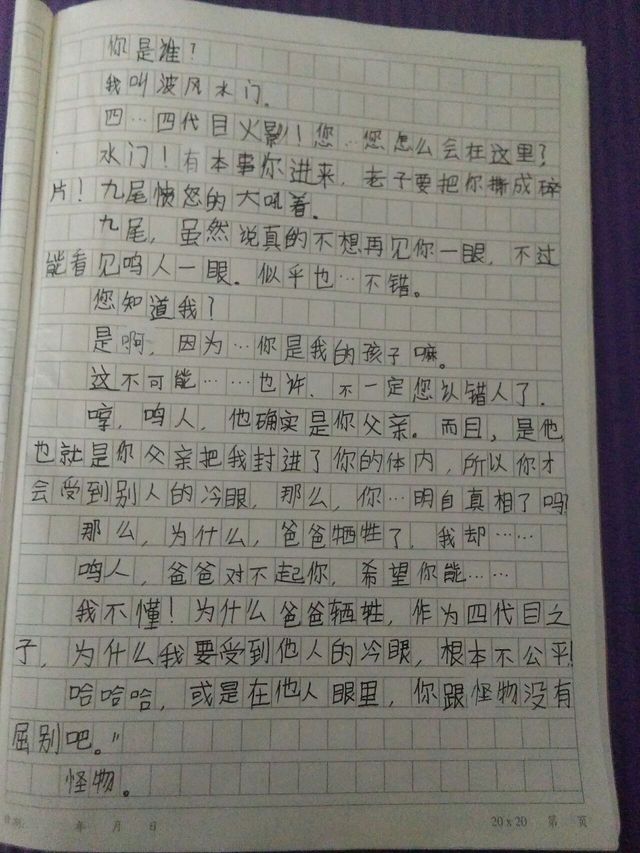 你是谁？
我叫波风水门。
四…四代目火影！您…您怎么会在这里？
水门！有本事你进来，老子要把你撕成碎
片！九尾愤怒的大吼着。
九尾，虽然说真的不想再见你一眼，不过
能看见鸣人一眼。似乎也…不错。
您知道我？
是啊，因为…你是我的孩子嘛。
这不可能……也许，不一定您认错人了。
哼，鸣人，他确实是你父亲。而且，是他
也就是你父亲把我封进了你的体内，所以你才
会受到别人的冷眼，那么，你…明白真相了吗！
那么，为什么，爸爸牺牲了，我却……
鸣人，爸爸对不起你，希望你能……
我不懂！为什么爸爸牺牲，作为四代目之
子，为什么我要受到他人的冷眼，根本不公平！
哈哈哈，或是在他人眼里，你跟怪物没有
屈别吧。"
怪物。
年 月 日
20×20 第 页